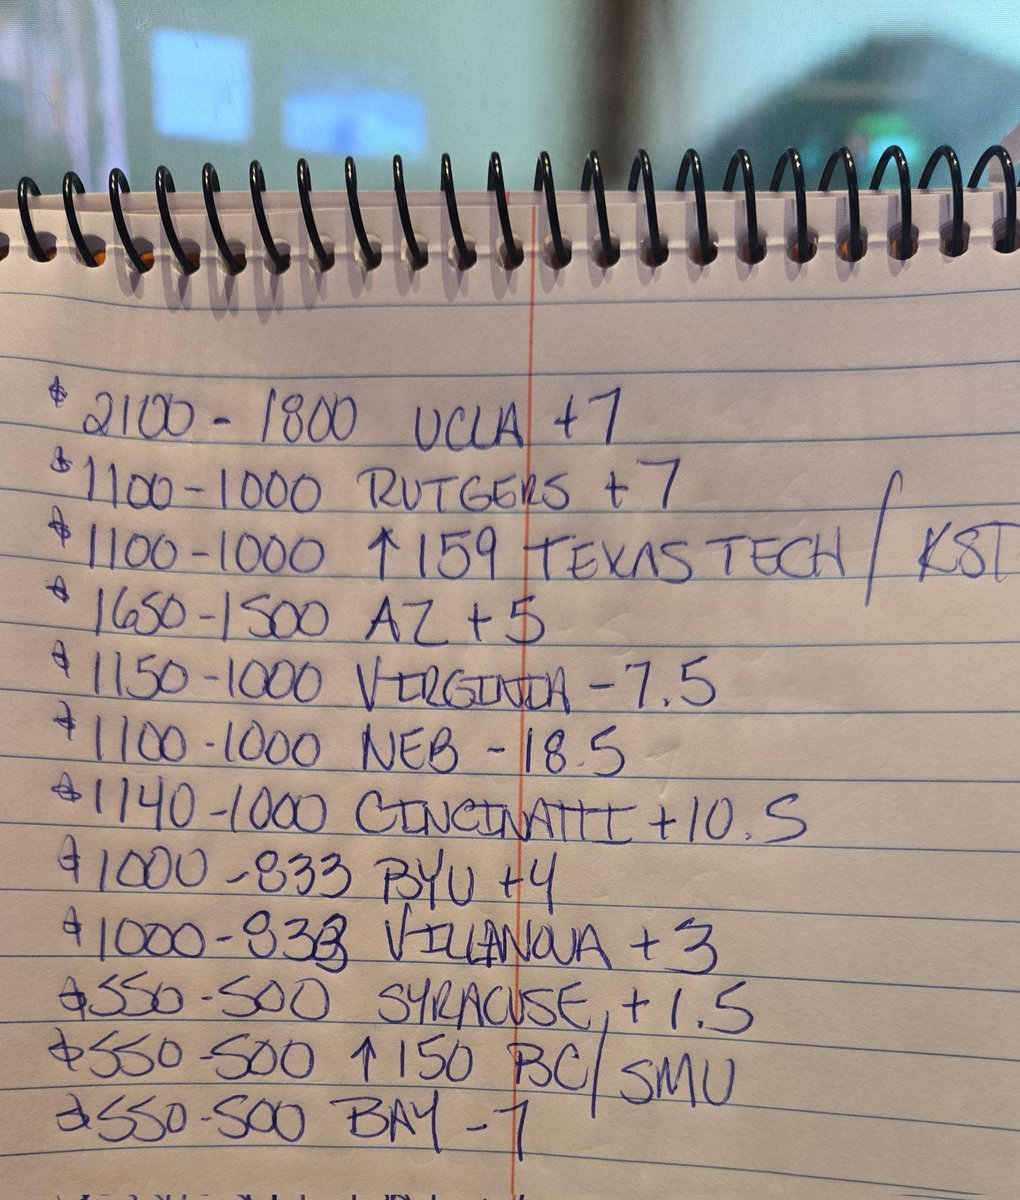 $ 2100 - 1800 UCLA +7
$ 1100 - 1000 RUTGERS + 7
$ 1100 - 1000 ↑ 159 TEXAS TECH / KST
$ 1650 - 1500 AZ + 5
$ 1150 - 1000 VIRGINIA - 7.5
$ 1100 - 1000 NEB - 18.5
$ 1140 - 1000 CINCINATTI + 10.5
$ 1000 - 833 BYU +4
$ 1000 - 833 VILLANOVA + 3
$ 550 - 500 SYRACUSE + 1.5
$ 550 - 500 ↑ 150 BC / SMU
$ 550 - 500 BAY - 7